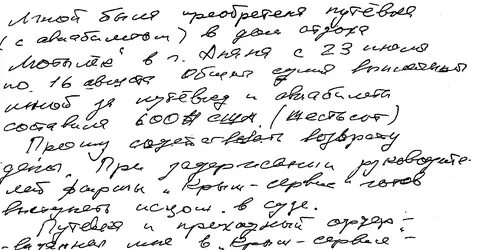 Мной была преобретена путёвка
(с авиабилетом) в дом отдыха
в г. Анапа с 23 июля
по 16 августа Общая сумма выплаченная
мной за путёвку и авиабилеты
составила 600$ сша. (шестьсот)
Прошу содействовать возврату
денег. При задержании руководите-
лей фирмы „Крым-сервис" готов
выступить исцом в суде.
Путёвка и приходный ордер -
мне в „Крым-сервис" -